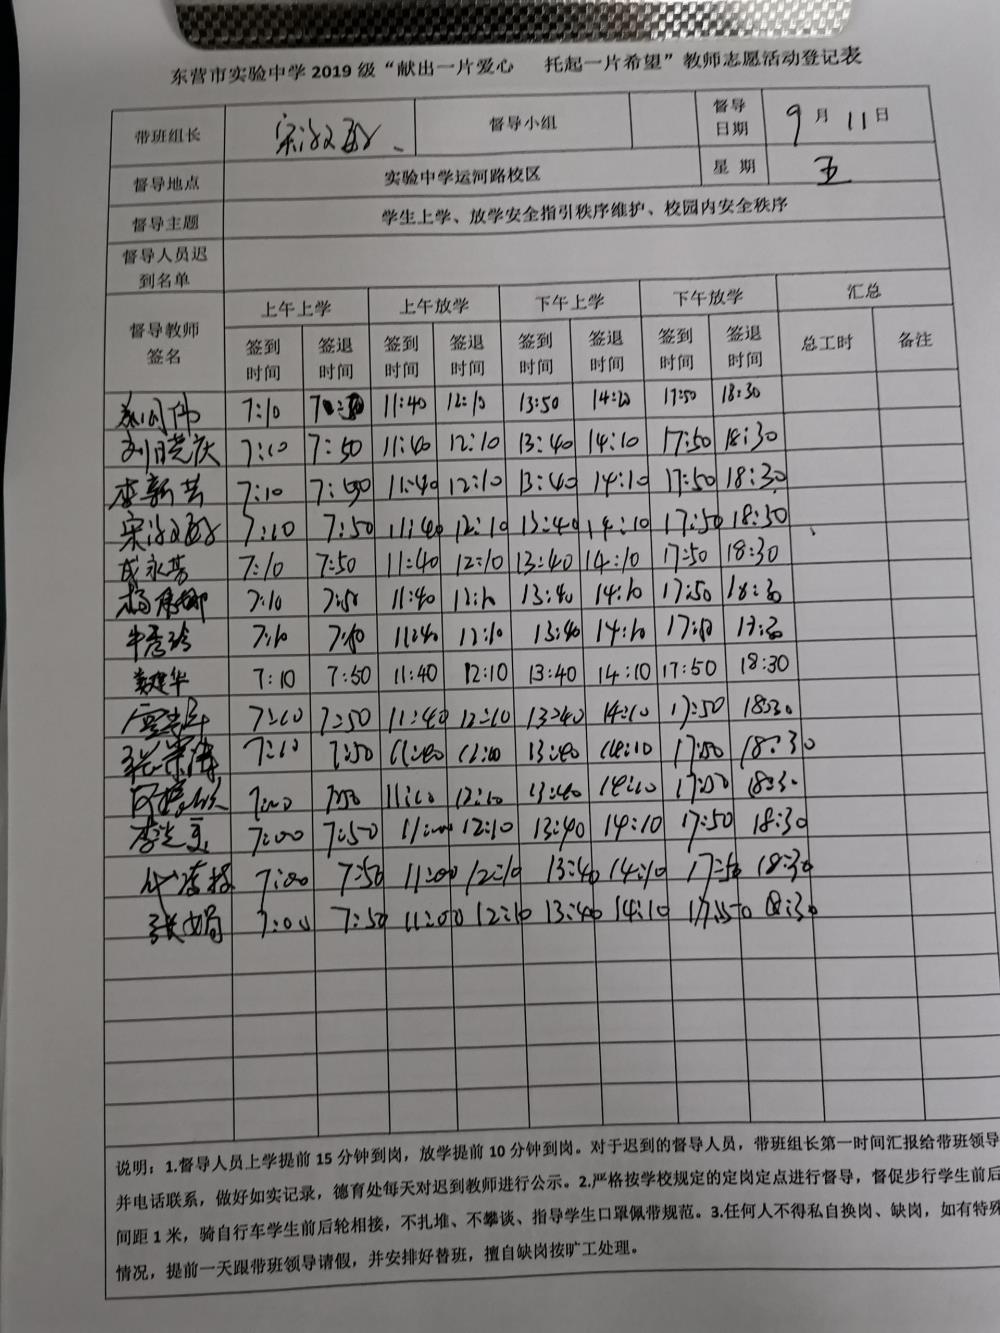 东营市实验中学2019级“献出一片爱心 托起一片希望”教师志愿活动登记表
带班组长 督导小组 督导日期 9月11日
督导地点 实验中学运河路校区 星期 五
督导主题 学生上学、放学安全指引秩序维护、校园内安全秩序
督导人员迟到名单
督导教师签名 上午上学 上午放学 下午上学 下午放学 汇总
签到时间 签退时间 签到时间 签退时间 签到时间 签退时间 签到时间 签退时间 总工时 备注
7:10 11:40 12:10 13:50 14:20 17:50 18:30
刘晓庆 7:10 7:50 11:40 12:10 13:40 14:10 17:50 18:30
李新芸 7:10 7:50 11:40 12:10 13:40 14:10 17:50 18:30
7:10 7:50 11:40 12:10 13:40 14:10 17:50 18:30
成永芳 7:10 7:50 11:40 12:10 13:40 14:10 17:50 18:30
7:10 7:50 11:40 12:10 13:40 14:10 17:50 18:30
牛秀玲 7:10 7:50 11:40 12:10 13:40 14:10 17:50
袁建华 7:10 7:50 11:40 12:10 13:40 14:10 17:50 18:30
7:10 7:50 11:40 12:10 13:40 14:10 17:50 18:30
7:10 7:50 11:40 13:40 14:10 17:50 18:30
7:50 12:10 13:40 14:10 18:30
7:00 7:50 11:00 12:10 13:40 14:10 17:50 18:30
7:00 7:50 11:00 12:10 13:40 14:10 17:50 18:30
张娟 7:00 7:50 11:00 12:10 13:40 14:10 17:50 18:30
说明：1.督导人员上学提前15分钟到岗，放学提前10分钟到岗。对于迟到的督导人员，带班组长第一时间汇报给带班领导
并电话联系，做好如实记录，德育处每天对迟到教师进行公示。2.严格按学校规定的定岗定点进行督导，督促步行学生前后
间距1米，骑自行车学生前后轮相接，不扎堆、不攀谈、指导学生口罩佩带规范。3.任何人不得私自换岗、缺岗，如有特殊
情况，提前一天跟带班领导请假，并安排好替班，擅自缺岗按旷工处理。